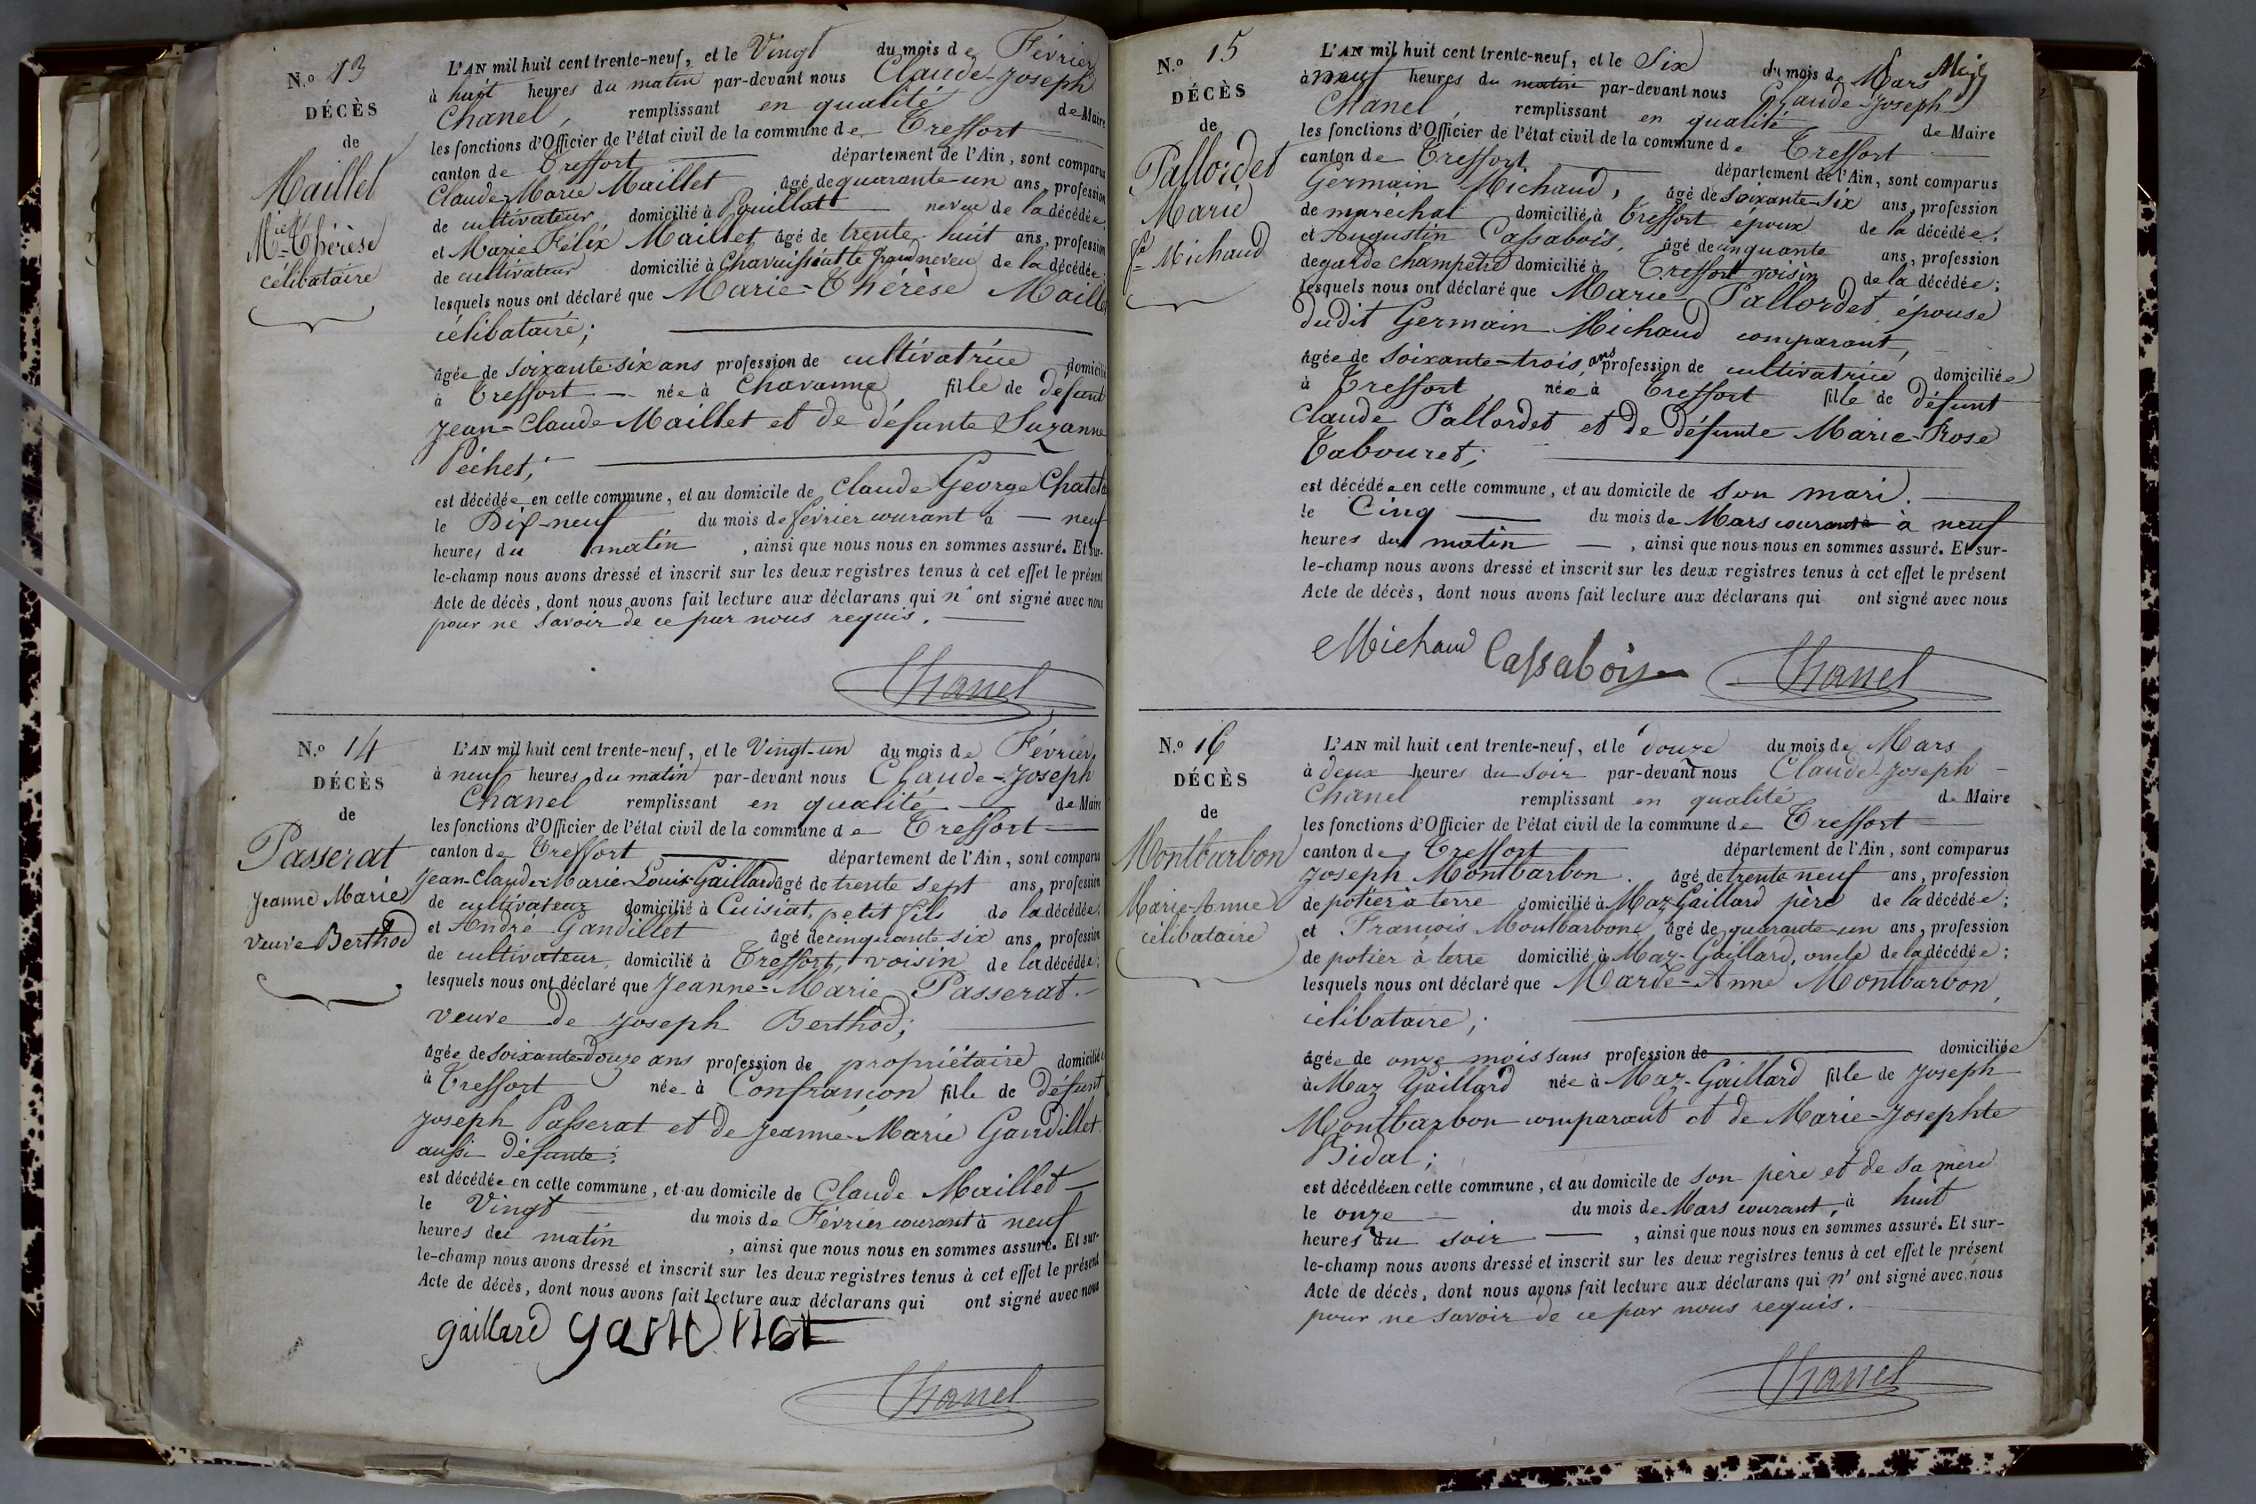 N.º 13
DÉCÈS
de
Maillet
M.ie Thérèse
célibataire
L'AN mil huit cent trente-neuf, et le Vingt du mois de Février
à huit heures du matin par-devant nous Claude-Joseph
Chanel, remplissant en qualité de Maire
les fonctions d'Officier de l'état civil de la commune de Treffort
canton de Treffort département de l'Ain, sont comparus
Claude-Marie Maillet âgé de quarante-un ans, profession
de cultivateur domicilié à Pouillat neveu de la décédée;
et Marie Félix Maillet âgé de trente-huit ans, profession
de cultivateur domicilié à Chavuissiat le grand neveu de la décédée;
lesquels nous ont déclaré que Marie-Thérèse Maillet
célibataire;
âgée de soixante-six ans profession de cultivatrice domicilié
à Treffort née à Chavanne fille de défunt
Jean-Claude Maillet et de défunte Suzanne
Péchet;
est décédée en cette commune, et au domicile de Claude George Chatel
le Dix-neuf du mois de février courant à neuf
heures du matin, ainsi que nous nous en sommes assuré. Et sur-
le-champ nous avons dressé et inscrit sur les deux registres tenus à cet effet le présent
Acte de décès, dont nous avons fait lecture aux déclarans qui n'ont signé avec nous
pour ne savoir de ce par nous requis.
Chanel
N.º 14
DÉCÈS
de
Passerat
Jeanne Marie
veuve Berthod
L'AN mil huit cent trente-neuf, et le Vingt-un du mois de Février
à neuf heures du matin par-devant nous Claude-Joseph
Chanel remplissant en qualité de Maire
les fonctions d'Officier de l'état civil de la commune de Treffort
canton de Treffort département de l'Ain, sont comparu
Jean-Claude-Marie-Louis Gaillard âgé de trente sept ans, profession
de cultivateur domicilié à Cuisiat, petit fils de la décédée;
et André Gandillet âgé de cinquante six ans, profession
de cultivateur, domicilié à Treffort, voisin de la décédée;
lesquels nous ont déclaré que Jeanne-Marie Passerat
veuve de Joseph Berthod;
âgée de soixante-douze ans profession de propriétaire domiciliée
à Treffort née à Confrançon fille de défunt
Joseph Passerat et de Jeanne-Marie Gandillet
aussi défunte;
est décédée en cette commune, et au domicile de Claude Maillet
le Vingt du mois de Février courant à neuf
heures du matin, ainsi que nous nous en sommes assuré. Et sur-
le-champ nous avons dressé et inscrit sur les deux registres tenus à cet effet le présent
Acte de décès, dont nous avons fait lecture aux déclarans qui ont signé avec nous
gaillard
Chanel
N.º 15
DÉCÈS
de
Pallordet
Marie
f.e Michaud
L'AN mil huit cent trente-neuf, et le Six du mois de Mars
à neuf heures du matin par-devant nous Claude Joseph
Chanel, remplissant en qualité de Maire
les fonctions d'Officier de l'état civil de la commune de Treffort
canton de Treffort département de l'Ain, sont comparus
Germain Michaud, âgé de soixante-six ans, profession
de maréchal domicilié à Treffort époux de la décédée;
et Augustin Cassabois, âgé de cinquante ans, profession
de garde champêtre domicilié à Treffort voisin de la décédée;
lesquels nous ont déclaré que Marie Pallordet, épouse
dudit Germain Michaud comparant,
âgée de soixante-trois ans profession de cultivatrice domiciliée
à Treffort née à Treffort fille de défunt
Claude Pallordet et de défunte Marie-Rose
Tabouret;
est décédée en cette commune, et au domicile de son mari.
le Cinq du mois de Mars courant à neuf
heures du matin, ainsi que nous nous en sommes assuré. Et sur-
le-champ nous avons dressé et inscrit sur les deux registres tenus à cet effet le présent
Acte de décès, dont nous avons fait lecture aux déclarans qui ont signé avec nous
Michaud Cassabois Chanel
N.º 16
DÉCÈS
de
Montbarbon
Marie-Anne
célibataire
L'AN mil huit cent trente-neuf, et le douze du mois de Mars
à deux heures du soir par-devant nous Claude Joseph
Chanel remplissant en qualité de Maire
les fonctions d'Officier de l'état civil de la commune de Treffort
canton de Treffort département de l'Ain, sont comparus
Joseph Montbarbon. âgé de trente neuf ans, profession
de potier à terre domicilié à Maz-Gaillard père de la décédée;
et François Montbarbon âgé de quarante-un ans, profession
de potier à terre domicilié à Maz-Gaillard, oncle de la décédée;
lesquels nous ont déclaré que Marie-Anne Montbarbon,
célibataire;
âgée de onze mois sans profession de domiciliée
à Maz Gaillard née à Maz-Gaillard fille de Joseph
Montbarbon comparant et de Marie-Josephte
Bidal;
est décédée en cette commune, et au domicile de son père et de sa mère
le onze du mois de Mars courant, à huit
heures du soir, ainsi que nous nous en sommes assuré. Et sur-
le-champ nous avons dressé et inscrit sur les deux registres tenus à cet effet le présent
Acte de décès, dont nous avons fait lecture aux déclarans qui n'ont signé avec nous
pour ne savoir de ce par nous requis.
Chanel